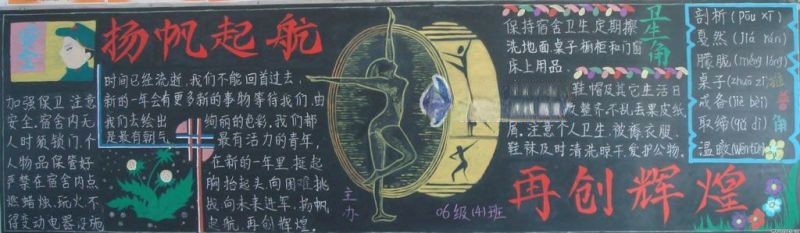 安全
扬帆起航
加强保卫 注意
安全.宿舍内无
人时须锁门.个
人物品保管好
严禁在宿舍内点
燃蜡烛.玩火不
得变动电器设施
时间已经流逝,我们不能回首过去,
新的一年会有更多新的事物等待我们.由
我们去绘出
绚丽的色彩.我们都
是最有朝气
最有活力的青年,
在新的一年里,挺起
胸抬起头向困难挑
战.向未来进军.扬帆
起航.再创辉煌.
主办
06级(4)班
保持宿舍卫生定期擦
洗地面桌子橱柜和门窗
床上用品.
卫生角
鞋帽及其它生活日
整齐.不乱丢果皮纸
屑.注意个人卫生.被褥衣服.
鞋袜及时清洗晾干.爱护公物.
再创辉煌
剖析(pōu xī)
戛然(Jiá rán)
朦胧(méng lóng)
桌子(zhuō zi)
戒备(jiè bèi)
取缔(qǔ dì)
温暾(wēn tūn)